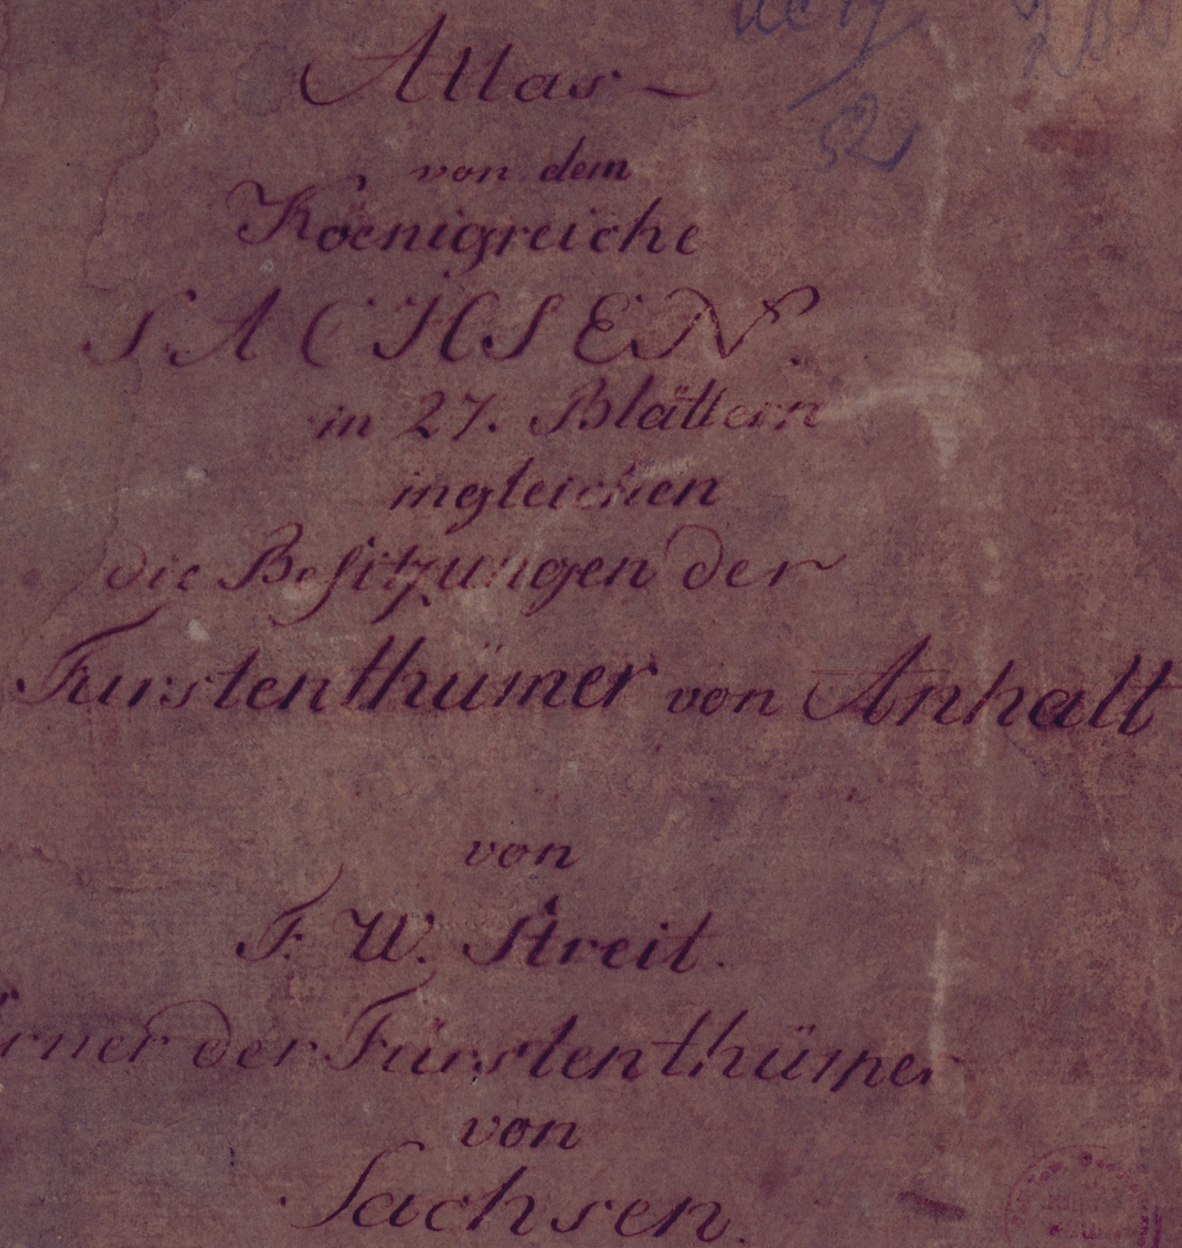 52
Atlas
von dem
Koenigreiche
SACHSEN.
in 27. Blättern
ingleichen
die Besitzungen der
Furstenthümer von Anhalt
von
F. W. Streit.
der Fürstenthümer
von
Sachsen.